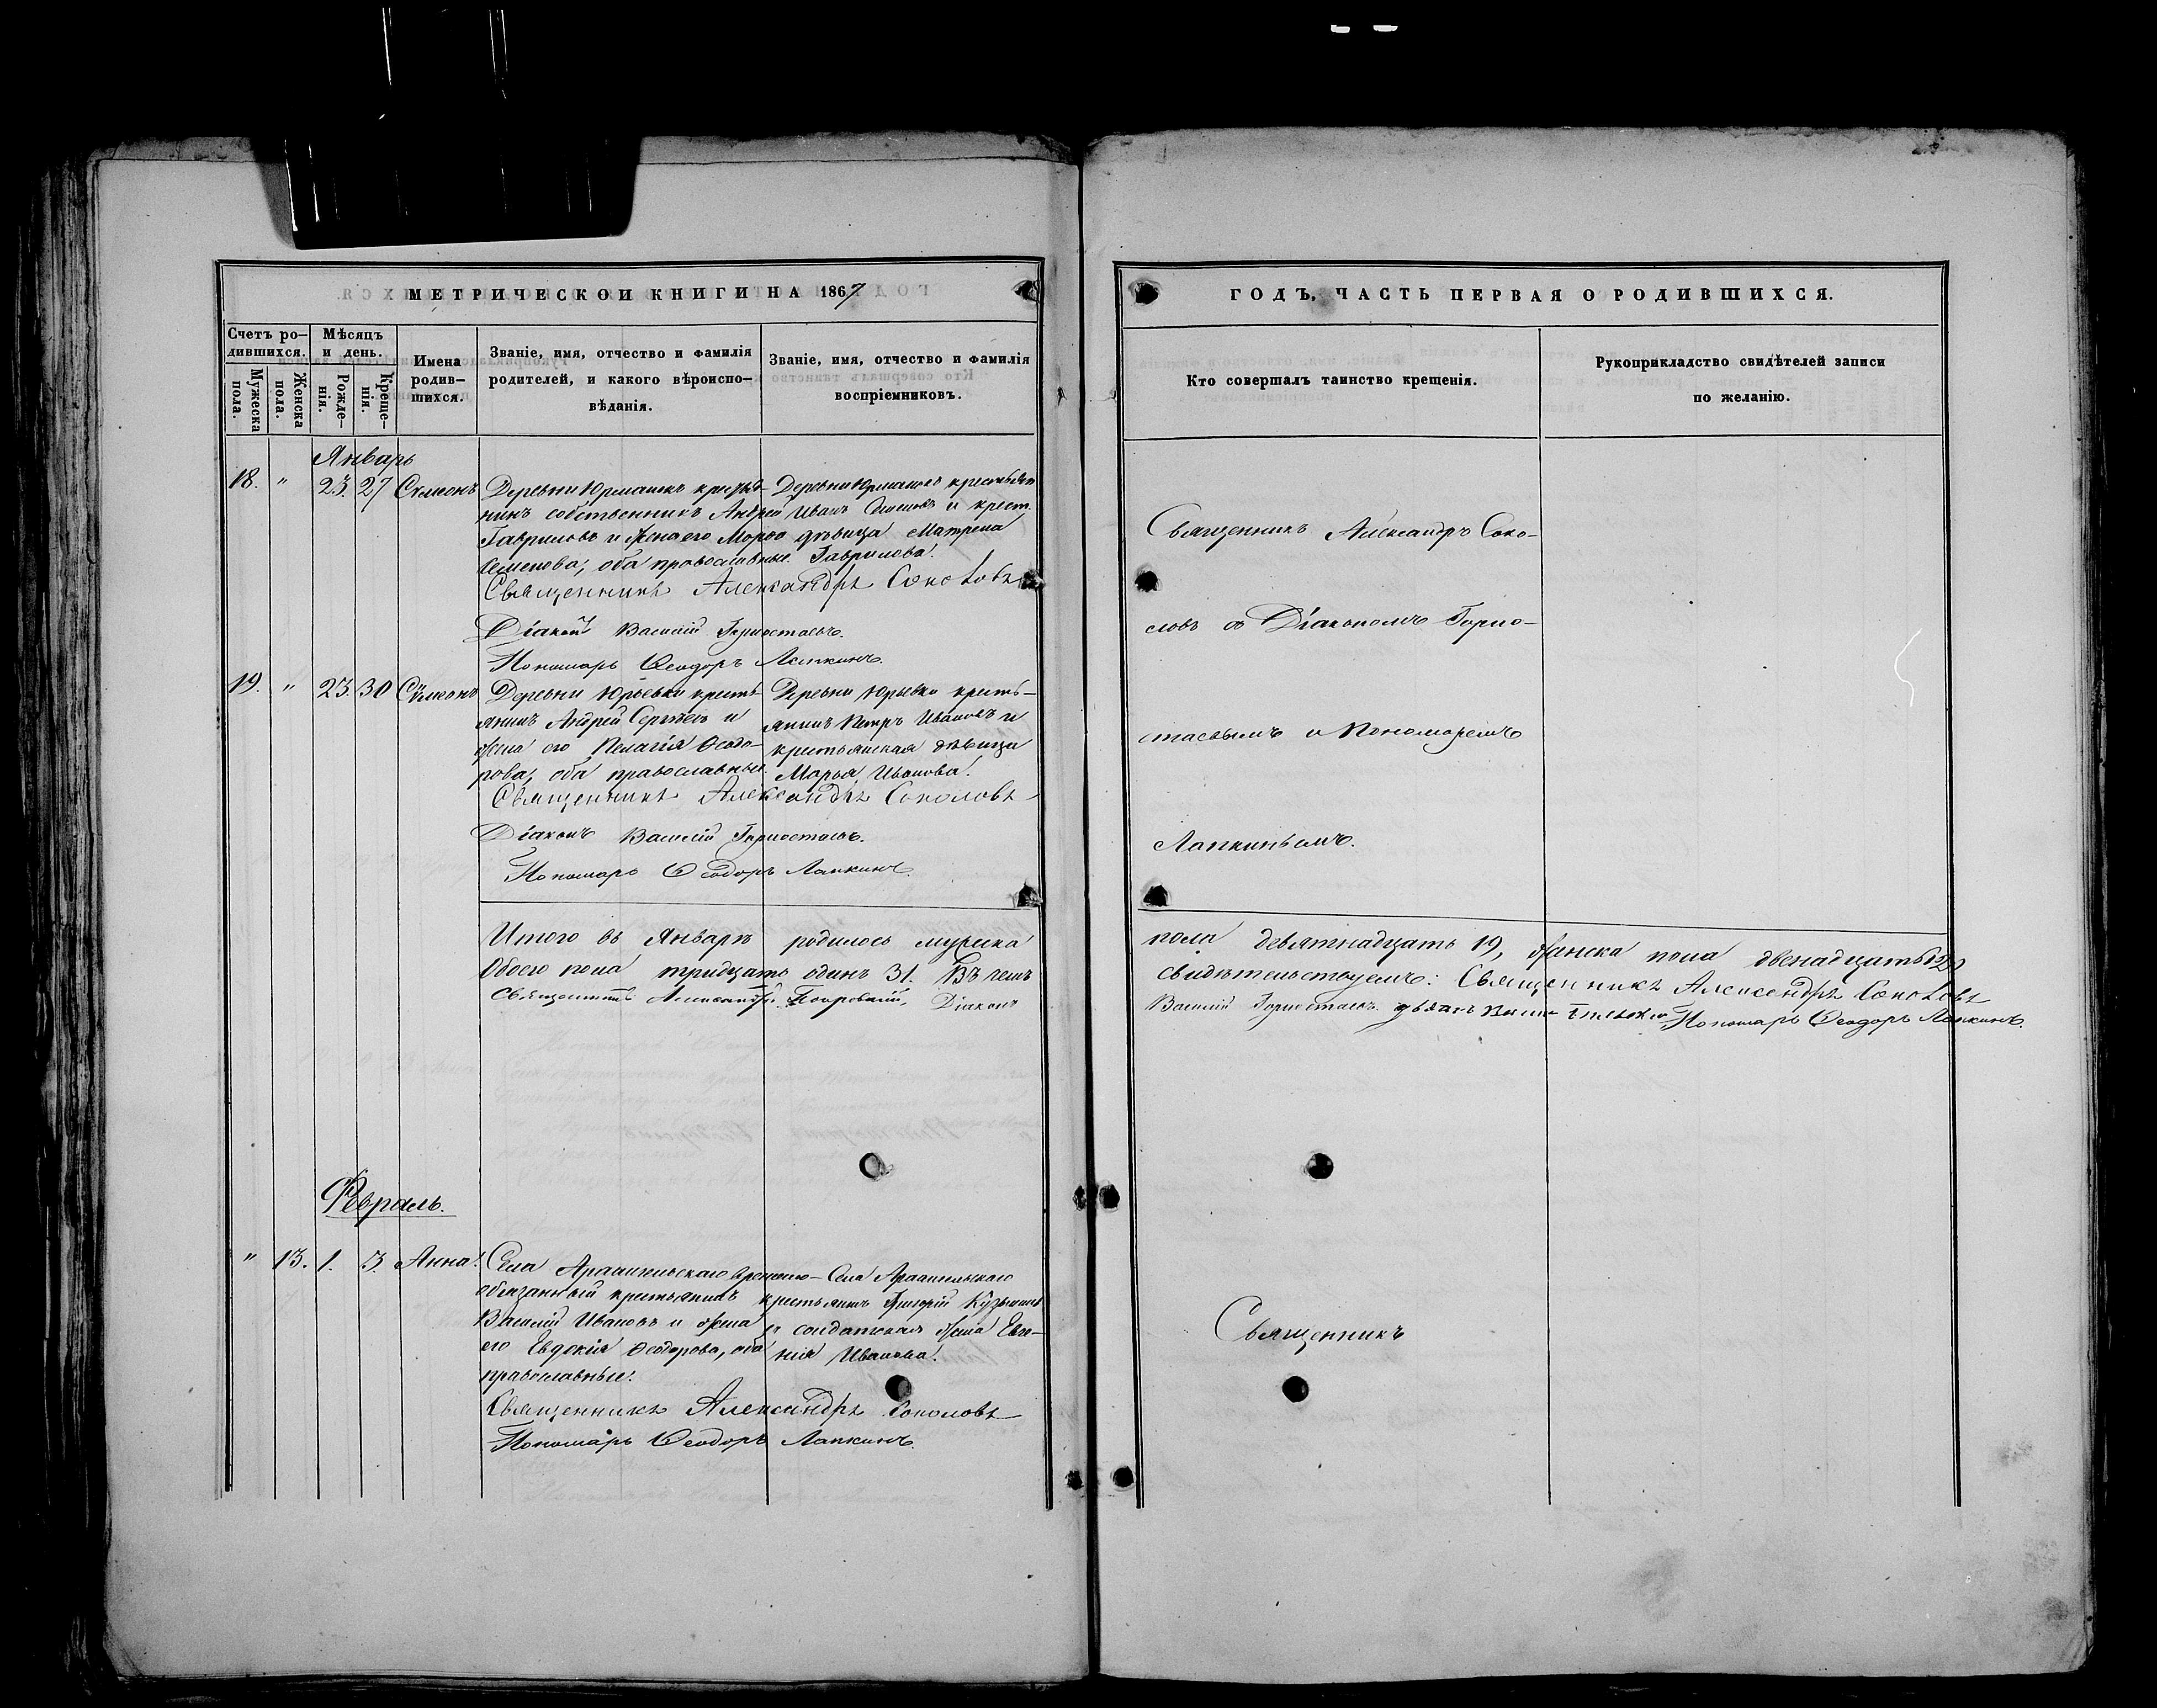 МЕТРИЧЕСКОИ КНИГИ НА 1867
Счетъ ро-
дившихся.
Мѣсяцъ
и день.
Мужеска
пола.
Женска
пола.
Рожде-
нія.
Креще-
нія.
Имена
родив-
шихся.
Званіе, имя, отчество и фамилія
родителей, и какого вѣроиспо-
вѣданія.
Званіе, имя, отчество и фамилія
воспріемниковъ.
Январь
18. " 23. 27 Сѵмеонъ
Деревни
нинъ собственникъ Андрей
Гавриловъ и жена его
Семенова; оба православные.
Деревни
Иванъ и крест.
дѣвица Матрена
Гаврилова.
Священникъ Александръ Соколовъ
Діаконъ Василій Горностаевъ.
Пономарь Ѳеодоръ Лапкинъ.
19. " 23. 30 Сѵмеонъ
Деревни Юрьевки кресть-
янинъ Андрей Сергѣевъ и
жена его Пелагія Ѳеодо-
рова, оба православные.
Деревни Юрьевки кресть-
янинъ Петръ Ивановъ и
крестьянская дѣвица
Марья Иванова.
Священникъ Александръ Соколовъ
Діаконъ Василій Горностаевъ.
Пономарь Ѳеодоръ Лапкинъ.
Итого въ Январѣ родилось мужеска
Обоего пола тридцать одинъ 31. Въ чемъ
Священникъ Александръ Покровскій, Діаконъ
Февраль.
" 13. 1. 3. Анна.
Села временно-
обязанный крестьянинъ
Василій Ивановъ и жена
его Евдокія Ѳеодорова, оба
православные.
Села
крестьянинъ Григорій
и солдатская жена
Иванова.
Священникъ Александръ Соколовъ
Пономарь Ѳеодоръ Лапкинъ.
ГОДЪ, ЧАСТЬ ПЕРВАЯ О РОДИВШИХСЯ.
Кто совершалъ таинство крещенія.
Рукоприкладство свидѣтелей записи
по желанію.
Священникъ Александръ Соко-
ловъ съ Діакономъ Горно-
стаевымъ и Пономаремъ
Лапкинымъ.
пола девятнадцать 19, женска пола двенадцать 12,
свидѣтельствуемъ: Священникъ Александръ Соколовъ
Василій Горностаевъ. Пономарь Ѳеодоръ Лапкинъ.
Священникъ